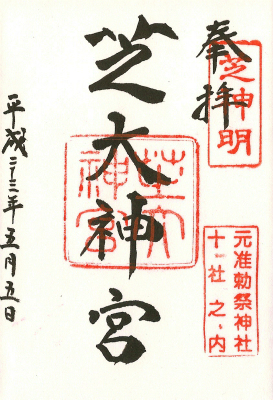 奉拝
芝神明
元准勅祭神社
十社之内
芝大神宮
芝大
神宮
平成二十三年五月五日